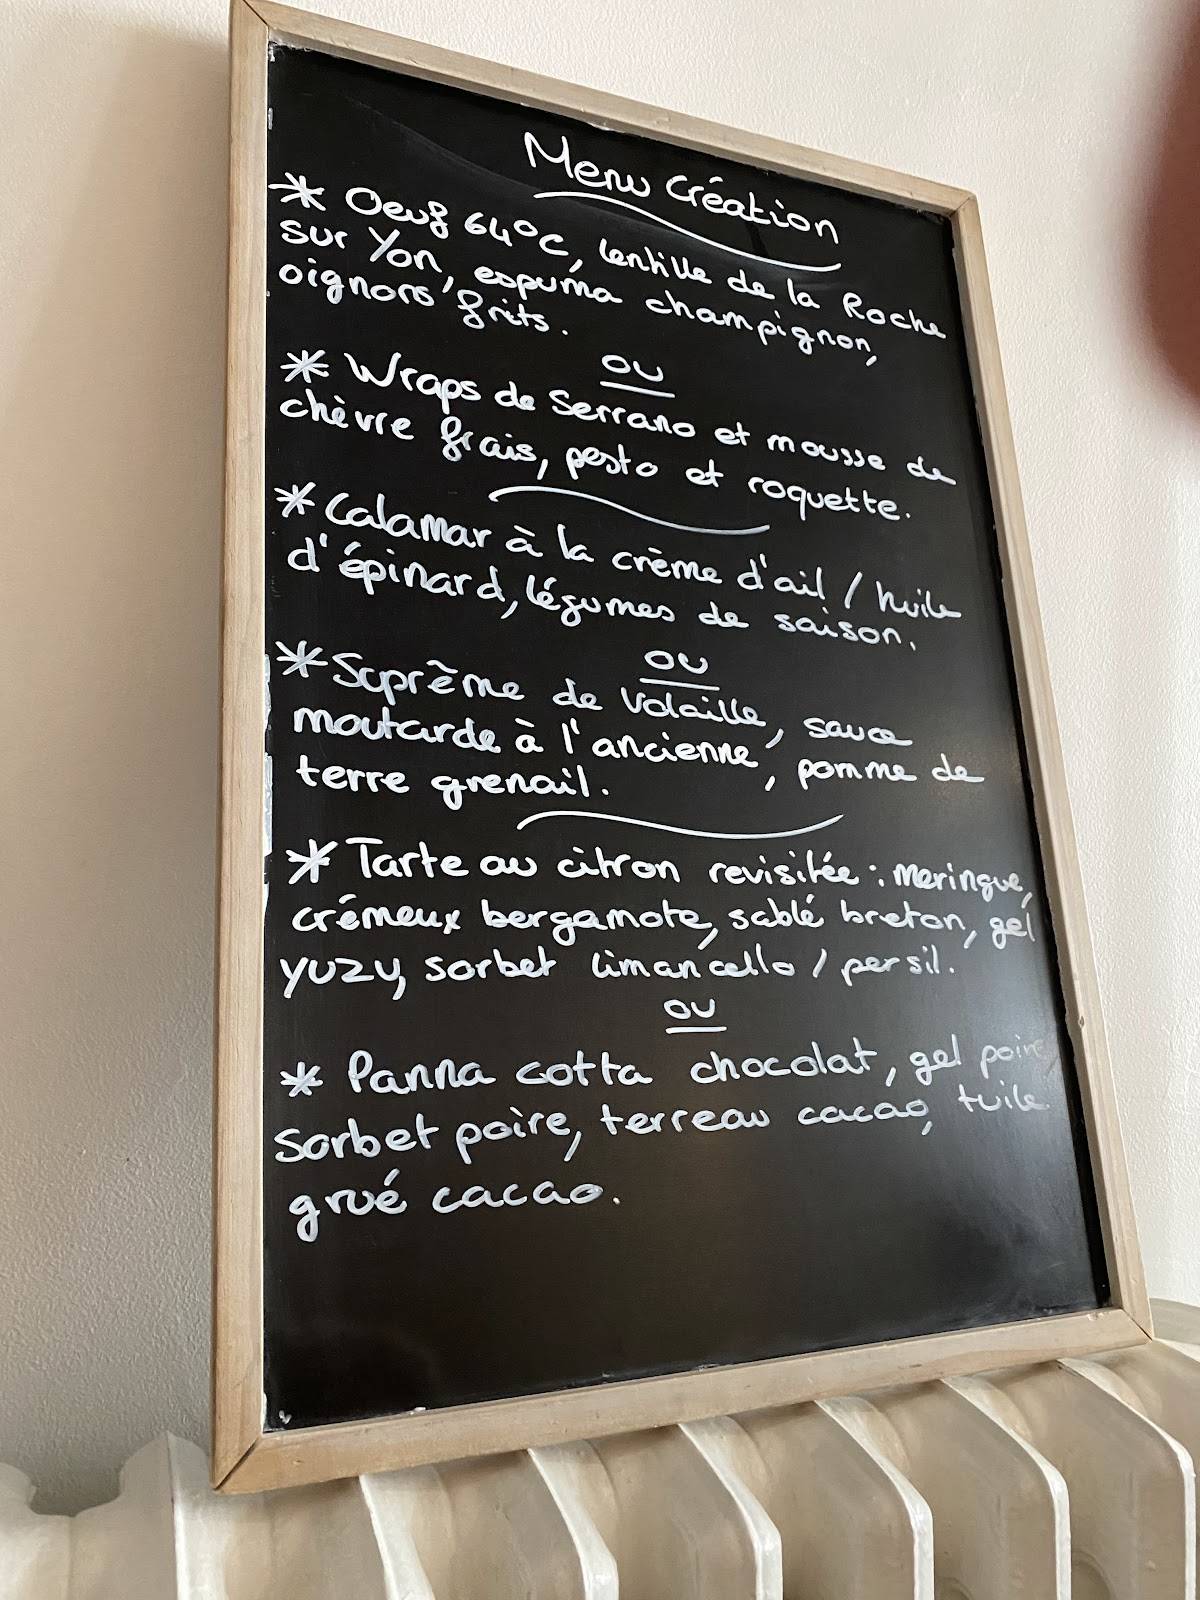 Menu Création
* Oeuf 64°C, lentille de la Roche
sur Yon, espuma champignon,
oignons frits.
ou
* Wraps de Serrano et mousse de
chèvre frais, pesto et roquette.
* Calamar à la crème d'ail / huile
d'épinard, légumes de saison.
ou
* Suprême de Volaille, sauce
moutarde à l'ancienne, pomme de
terre grenail.
* Tarte au citron revisitée : meringue,
crémeux bergamote, sablé breton, gel
yuzu, sorbet limancello / persil.
ou
* Panna cotta chocolat, gel poire
sorbet poire, terreau cacao, tuile
grué cacao.